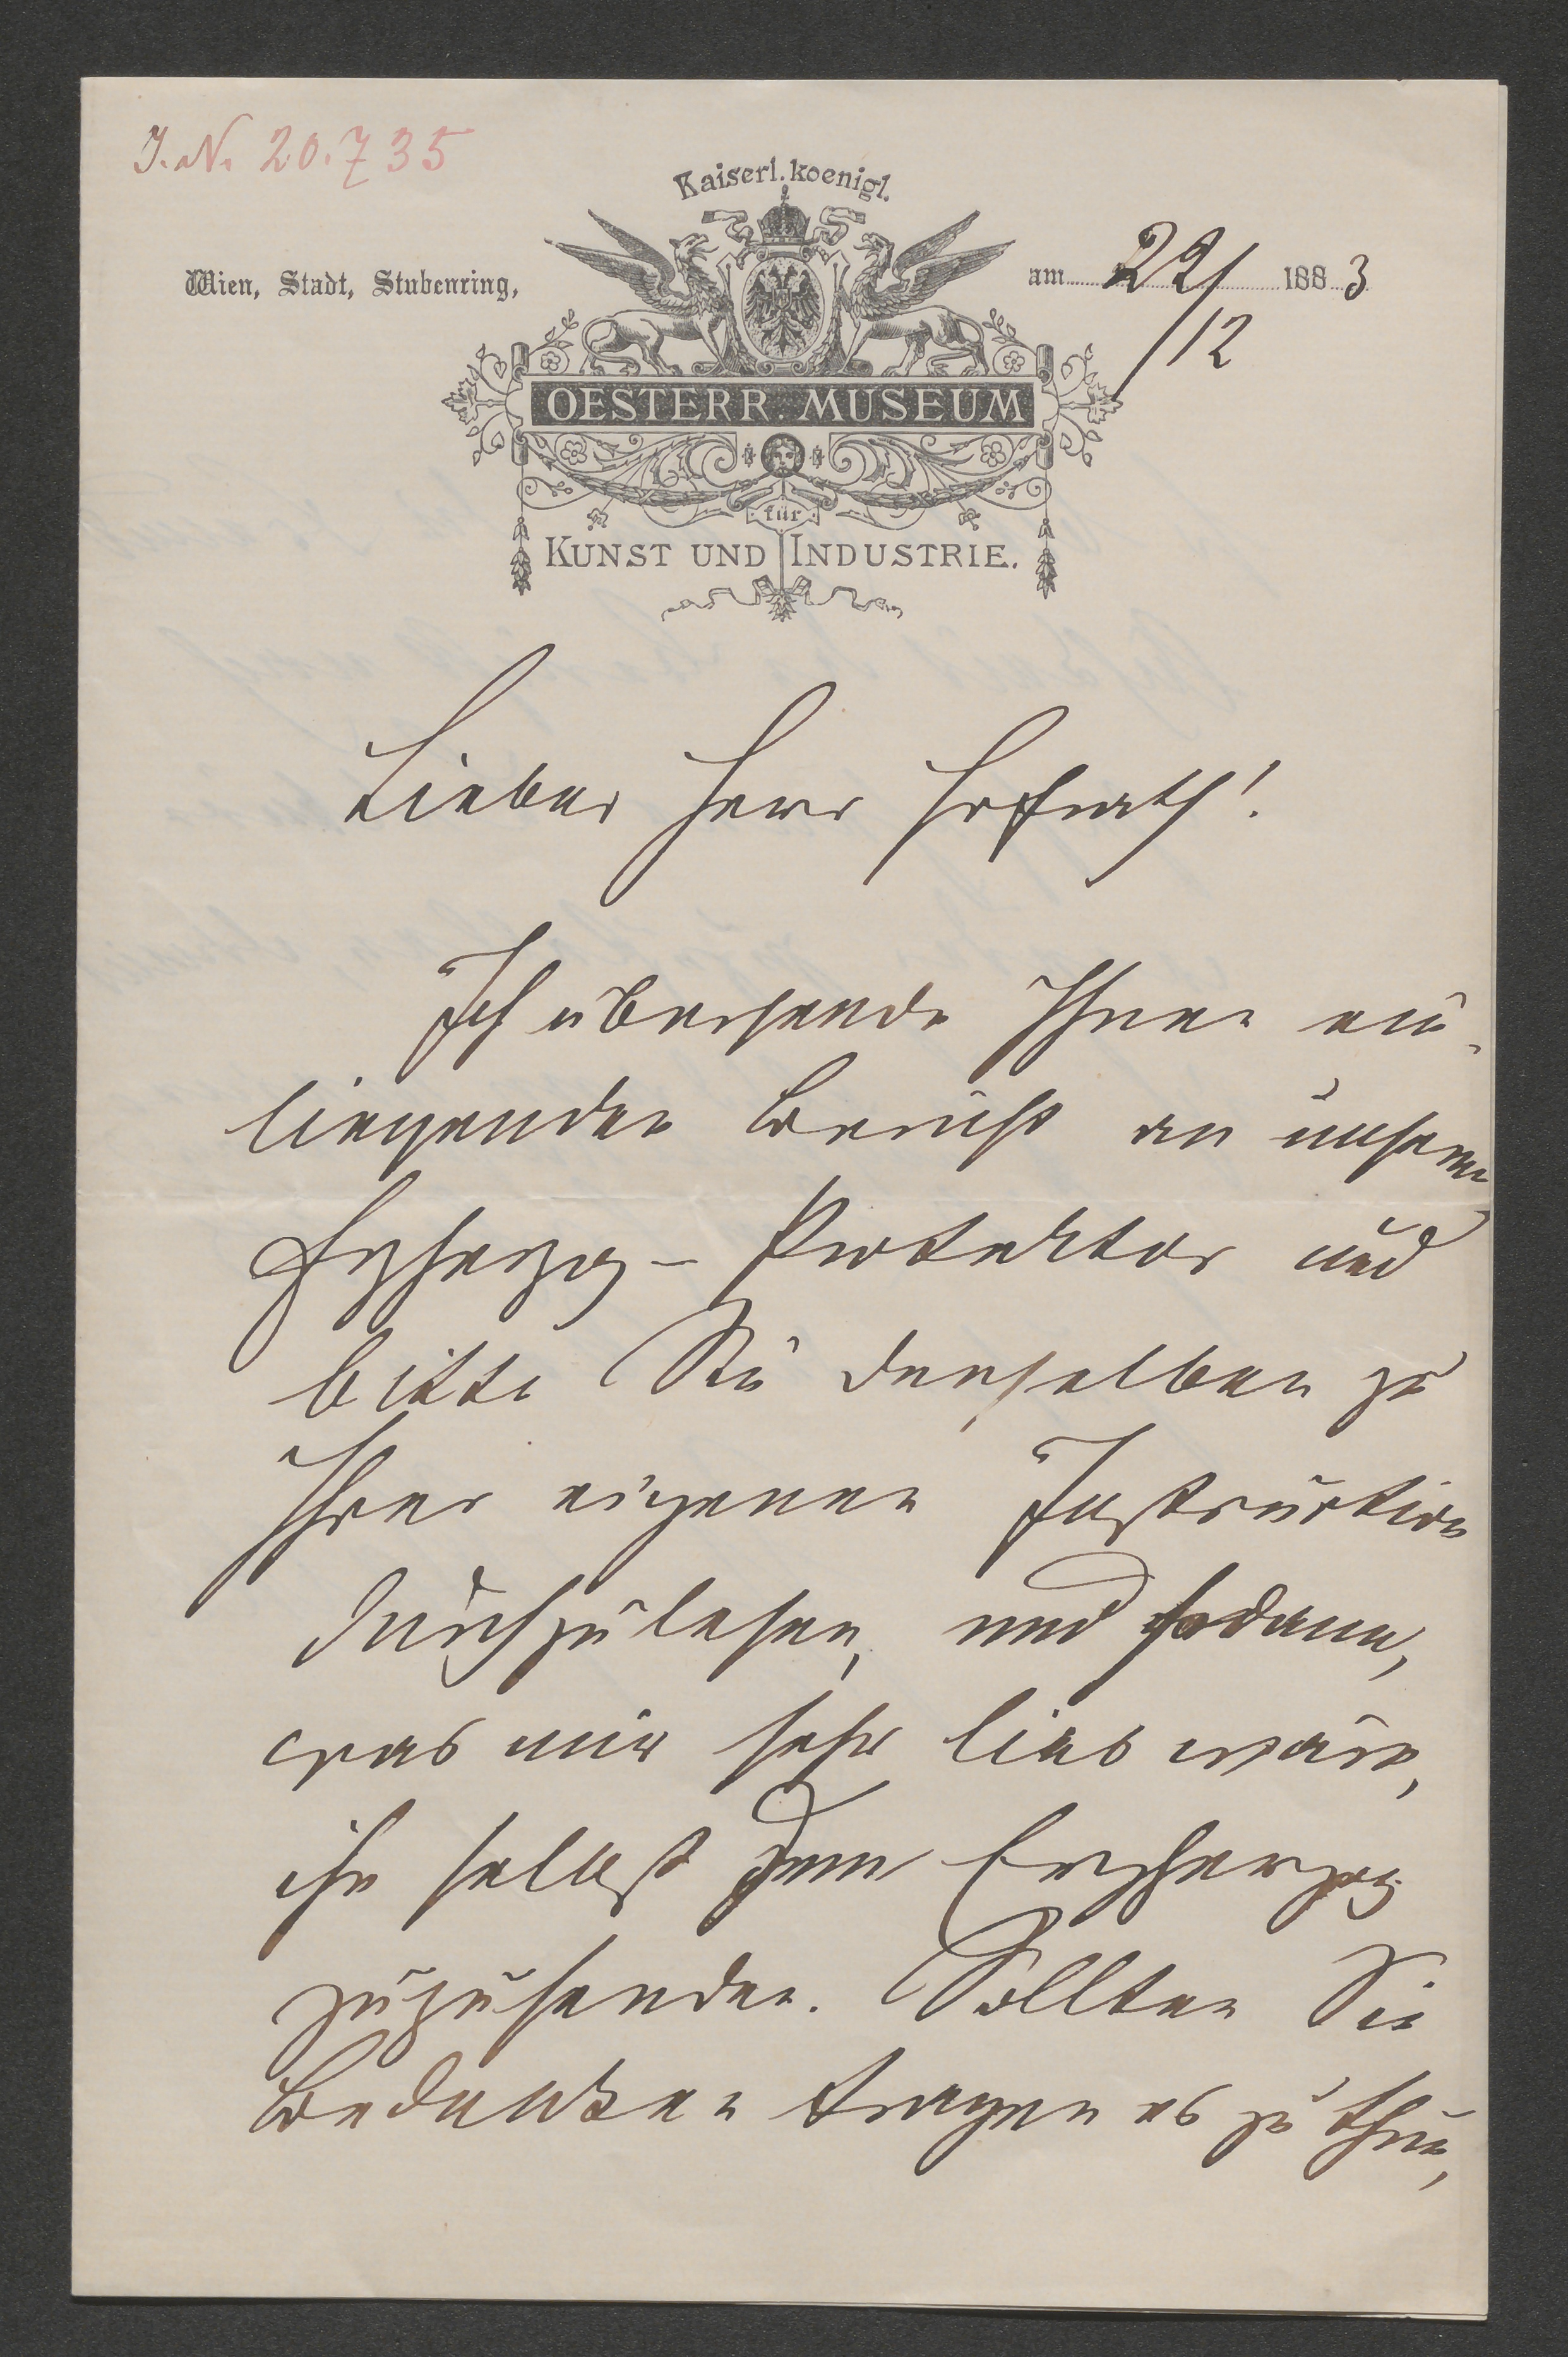 J. N. 20.735
Kaiserl. koenigl.
Wien, Stadt, Stubenring,
am 22/ 1883
/12
OESTERR. MUSEUM
für
KUNST UND INDUSTRIE.
Lieber Herr Hofrath!
Ich übersende Ihnen ein-
liegenden Bericht an unseren
Erzherzog-Protektor und
bitte Sie denselben zu
Ihrer eigenen Instruction
durchzulesen, und sodann,
was mir sehr lieb wäre,
ihn selbst dem Erzherzog
zuzusenden. Sollten Sie
Bedenken tragen es zu thun,